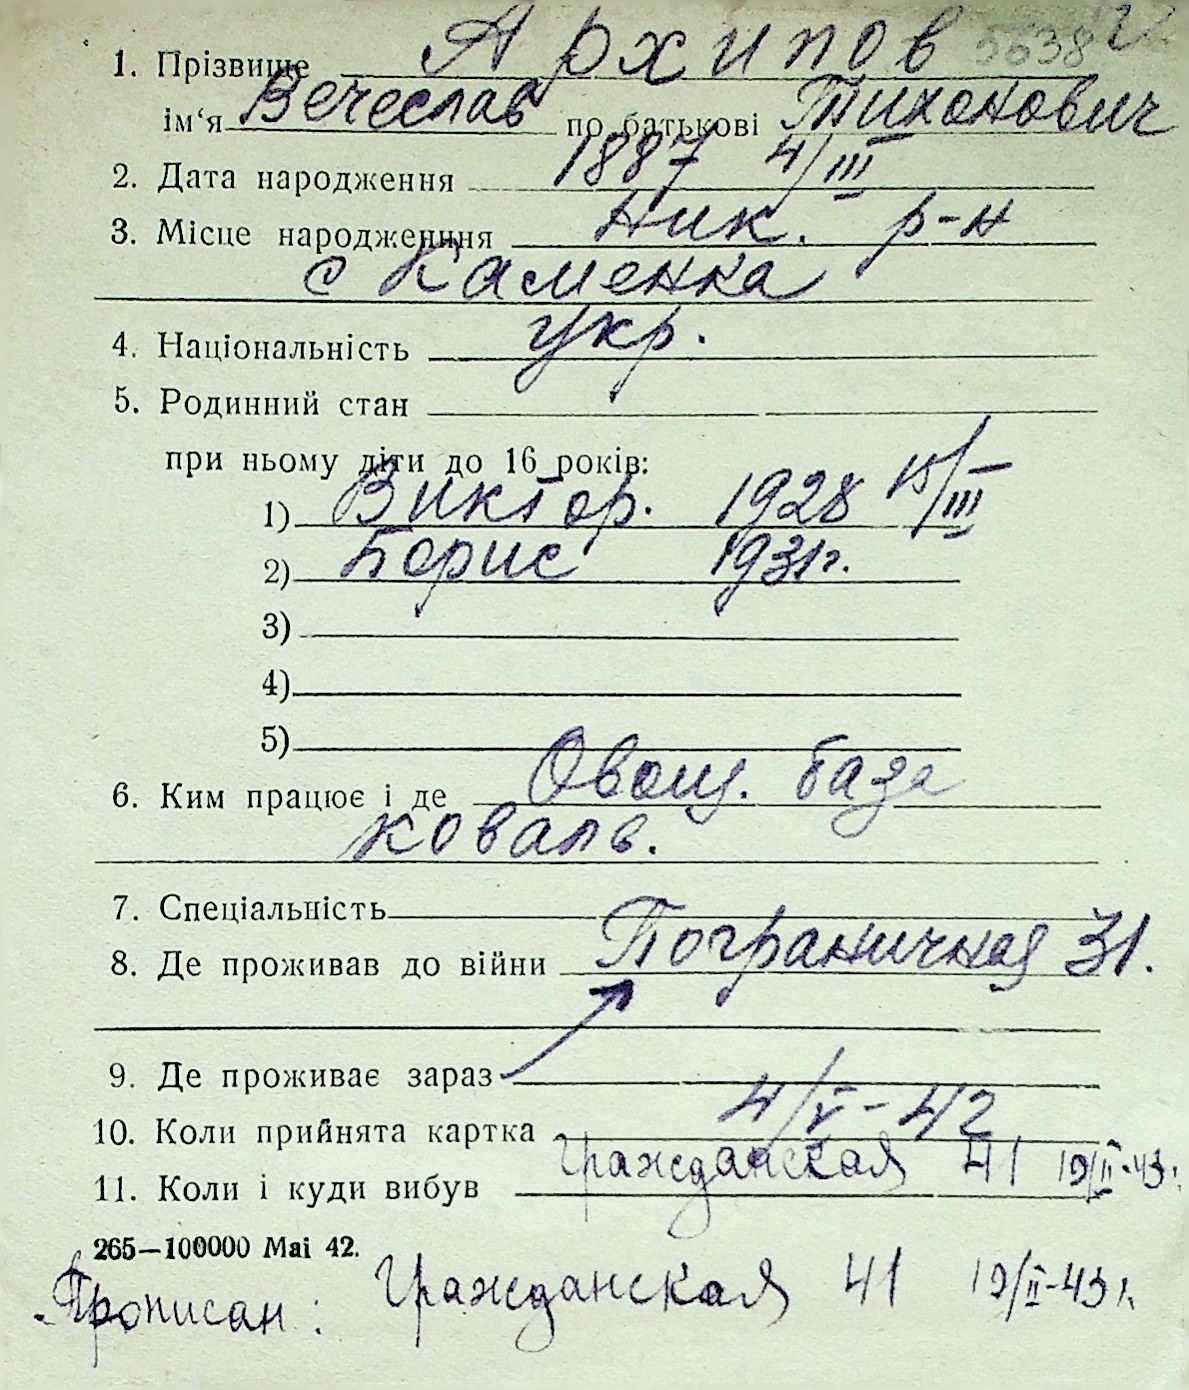 1. Прізвище Архипов 5638
ім‘я Вечеслав по батькові Тихонович
2. Дата народження 1887 4/III
3. Місце народженння Ник. р-н
с Каменка
4. Національність Укр.
5. Родинний стан
при ньому діти до 16 років:
1) Виктор. 1928 15/III
2) Борис 1931г.
3)
4)
5)
6. Ким працює і де Овощ. база
коваль.
7. Спеціальність
8. Де проживав до війни Пограничная 31.
9. Де проживає зараз
10. Коли прийнята картка 4/V-42
11. Коли і куди вибув Гражданская 41 19/II-43г.
265—100000 Mai 42.
Прописан: Гражданская 41 19/II-43г.